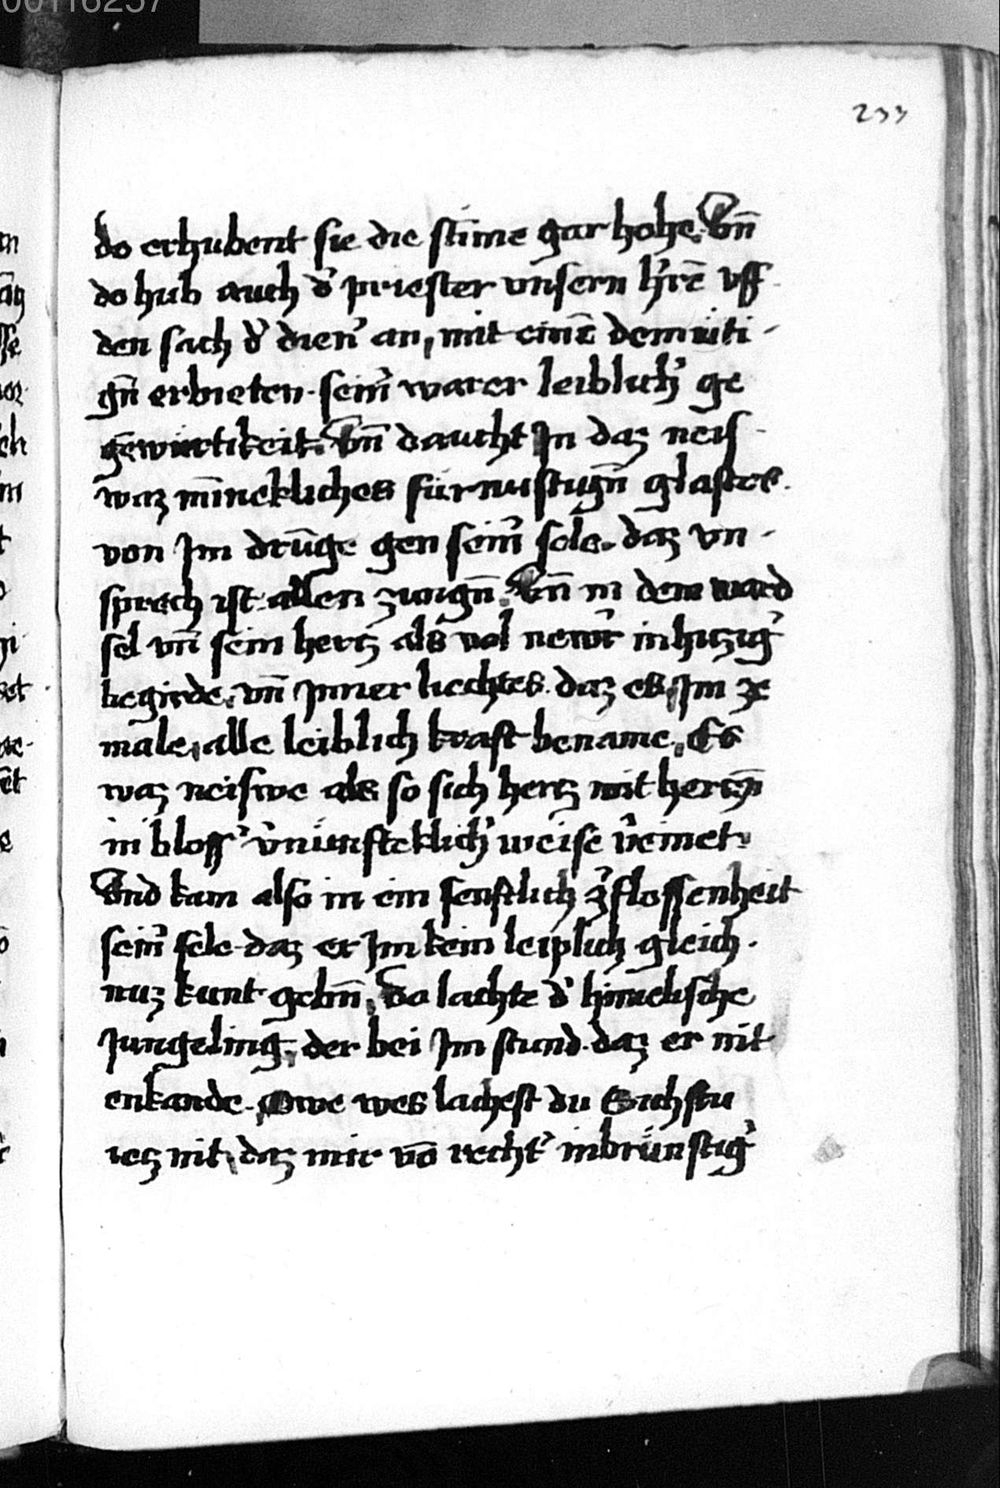 00116257
233
do erhubent sie die stīme gar hohe. Vn̄
do hub auch d᾽ priester vnsern h᾽rē vff
den sach d᾽ dien᾽ an, mit einē demüti-
gn̄ erbieten. seim᾽ warer leiblich᾽ ge
gēwürtikeit. Vn̄ daucht Jn daz neis-
waz mīnekliches fürnustign̄ glastes.
von Jm drūge gen sein᾽ sele. daz vn-
sprech ist allen zungn̄. Vn̄ in dem ward
sel vn̄ sein hertz als vol newr᾽ inhitzig᾽
begirde. vn̄ Jnner liechtes. daz es Jm ze
male, alle leiblich kraft bename. Es
waz neiswe als so sich hertz mit hertzn̄
in bloss᾽ v᾽nünfteklich᾽ weise v᾽einet.
Vnd kam also in ein senftlich z᾽flossenheit
sein᾽ sele. daz er Jm kein leiplich gleich.
nuz kunt gebn̄. Do lachte d᾽ himelische
Jungeling, der bei Jm stund. daz er nit
enkande. Owe wes lachest du Sichstu
ietz nit, daz mir vō recht᾽ inbrünstig᾽